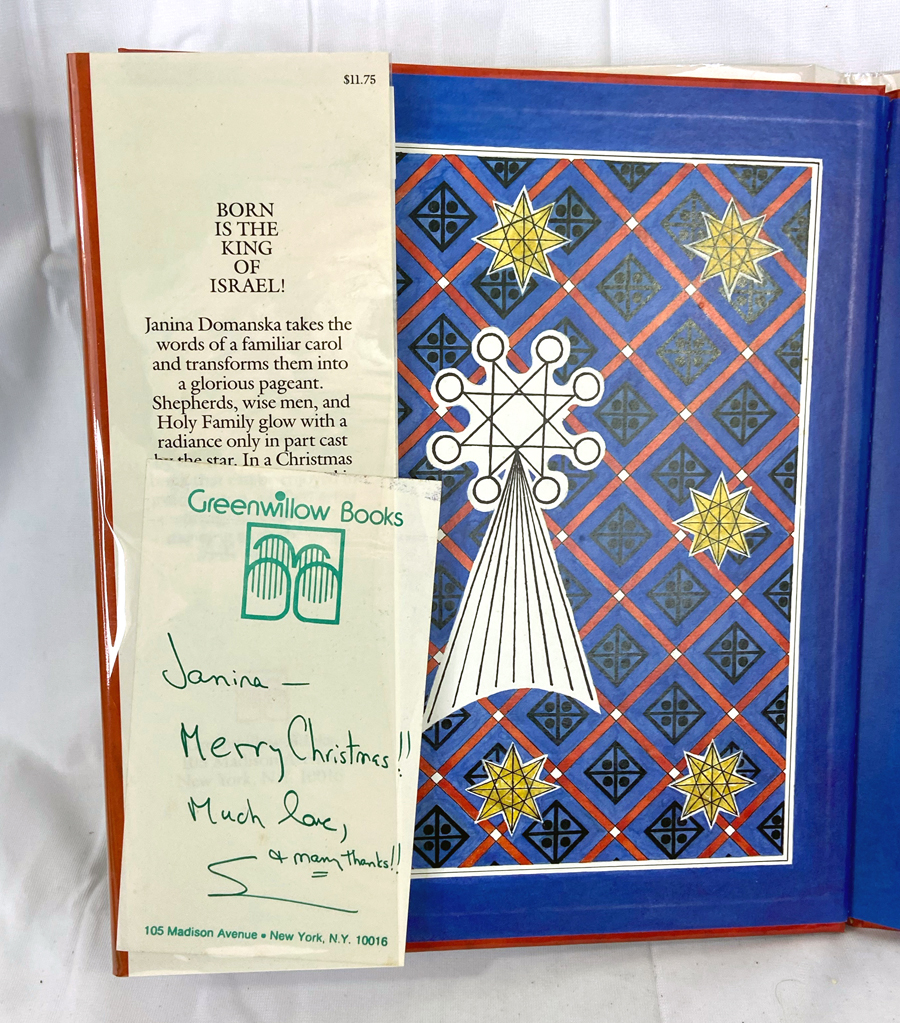 $11.75
BORN
IS THE
KING
OF
ISRAEL!
Janina Domanska takes the
words of a familiar carol
and transforms them into
a glorious pageant.
Shepherds, wise men, and
Holy Family glow with a
radiance only in part cast
by the star. In a Christmas
Greenwillow Books
Janina —
Merry Christmas!!
Much love,
& many thanks!!
S
105 Madison Avenue • New York, N.Y. 10016